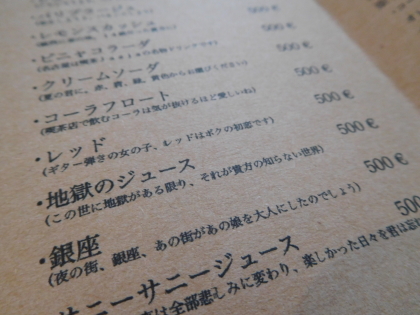 ・レモンスカッシュ
500 €
・ピニャコラーダ
・クリームソーダ 500 €
(夏の君に、赤、青、緑、黄色からお選びください)
・コーラフロート 500 €
(喫茶店で飲むコーラは気が抜けるほど愛しいね)
・レッド 500 €
(ギター弾きの女の子、レッドはボクの初恋です)
・地獄のジュース 500 €
(この世に地獄がある限り、それが貴方の知らない世界)
・銀座 500 €
(夜の街、銀座、あの街があの娘を大人にしたのでしょう)
サニーサニージュース 500
は全部悲しみに変わり、楽しかった日々を君は忘